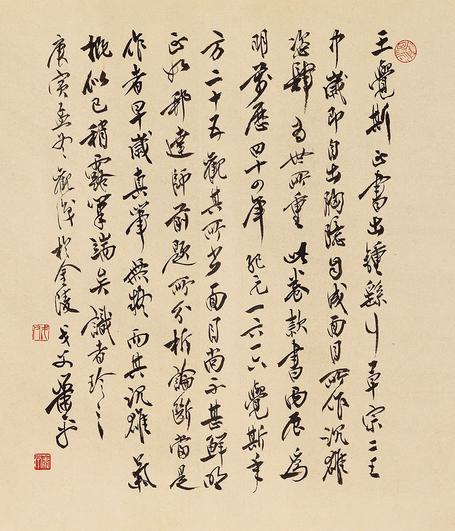 王覺斯正書出鍾繇行草宗二王
中歲即自出胸臆自成面目所作沉雄
恣肆為世所重此卷款書丙辰為
明萬歷四十四年紀元一六一六覺斯年
方二十五觀其所書面目尚不甚鮮明
正如邢達師前題所分析論斷當是
作者早歲真筆無疑而其沉雄氣
概似已稍露筆端矣識者珍之
庚寅孟冬觀識於金陵戈父蕭平